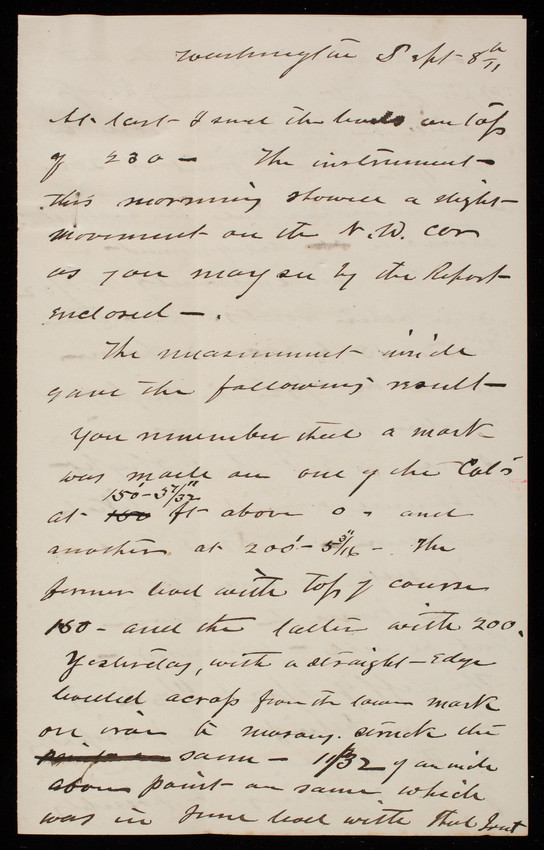 Washington Sept 8th
At last I send the levels on top
of 230 — The instrument
this morning showed a slight
movement on the N.W. cor
as you may see by the Report
enclosed —.
The measurement inside
gave the following result —
You remember that a mark
was made on one of the Col's
150'-5 7/32"
at 150 ft above 0 - and
another at 200'- 5 3/16" - The
former level with top of course
150 - and the latter with 200.
Yesterday, with a straight-Edge
levelled across from the lower mark
on iron to masonry. struck the
same — 11/32 of an inch
above point on same which
was in June level with that Iron